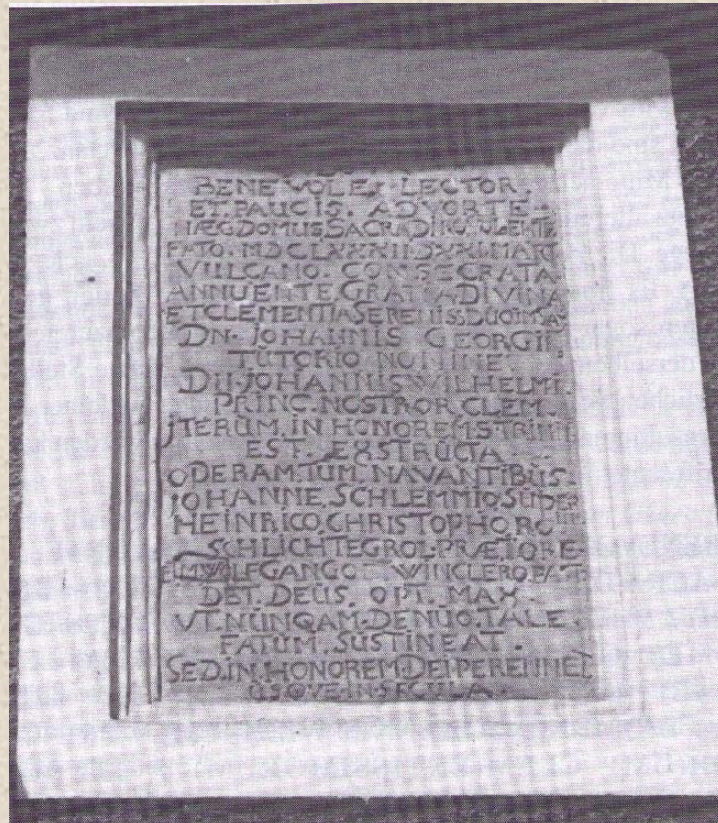 BENEVOLE LECTOR.
ET. PAUCIS. ADVORTE.
HÆC. DOMUS. SACRA.
FATO. MDCLXXXII.D.XXI.MART
VULCANO. CONSECRATA
ANNUENTE. GRATIA DIVINA
ET CLEMENTIA SERENISS.
DN. JOHANNIS GEORGII
TUTORIO NOMINE
DN. JOHANNIS WILHELMI.
PRINC. NOSTROR CLEM.
JTERUM. IN HONOREM.
EST. EXSTRUCTA
ODERAM. TUM. NAVANTIBUS.
JOHANNE. SCHLEMMIO. SUPER
HEINRICO. CHRISTOPHORO
SCHLICHTEGROL. PRÆTORE
WOLFGANGO WINCLERO.
DET. DEUS. OPT. MAX.
VT. NUNQAM. DENUO. TALE.
FATUM. SUSTINEAT.
SED. IN. HONOREM. DEI PERENNET
USQVE. IN SECULA.